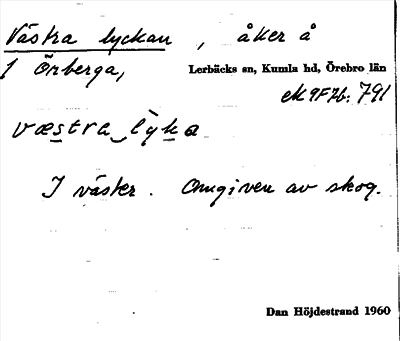 Västra lyckan, åker å
1 Örberga,
Lerbäcks sn, Kumla hd, Örebro län
791
væstra lyka
I väster. Omgiven av skog.
Dan Höjdestrand 1960